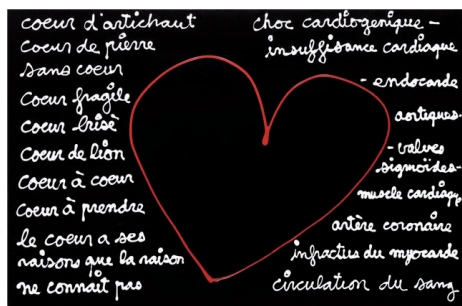 coeur d'artichaut
coeur de pierre
sans coeur
coeur fragile
coeur brisè
coeur de lion
coeur à coeur
coeur à prendre
le coeur a ses
raisons que la raison
ne connaît pas
choc cardiogenique -
insuffisance cardiaque
- endocarde
aortiques -
- valves
sigmoïdes -
muscle cardiaque
artère coronaire
infractus du myocarde
circulation du sang